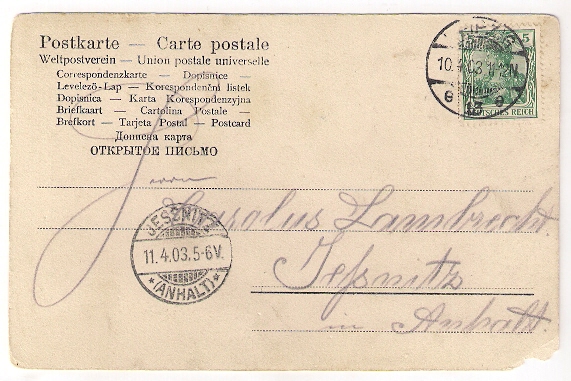 Postkarte — Carte postale
Weltpostverein — Union postale universelle
Correspondenzkarte — Dopisnice —
Levelező-Lap — Korespondenční listek
Dopisnica — Karta Korespondenzyjna
Briefkaart — Cartolina Postale —
Brefkort — Tarjeta Postal — Postcard
Дописна карта
ОТКРЫТОЕ ПИСЬМО
5
10.4.03
DEUTSCHES REICH
Herrn
Carolus Lambrecht
Jeßnitz
in Anhalt.
JESZNITZ
11.4.03.5-6V.
*(ANHALT)*